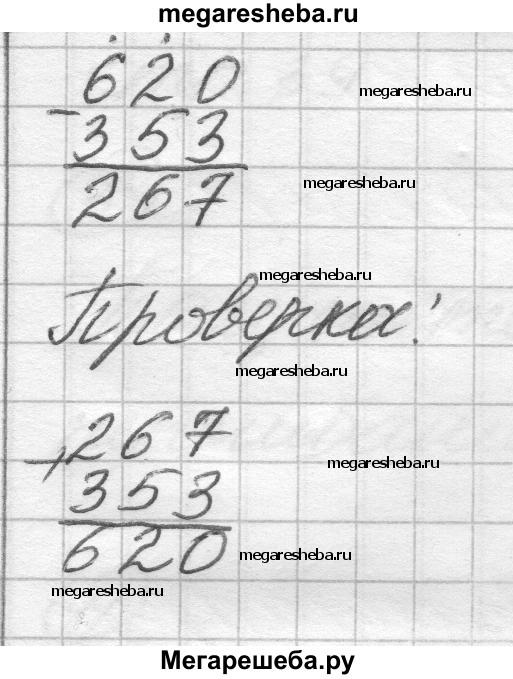 megaresheba.ru
620
megaresheba.ru
-
353
megaresheba.ru
267
megaresheba.ru
Проверка:
megaresheba.ru
267
+
megaresheba.ru
353
620
megaresheba.ru
megaresheba.ru
Мегарешеба.ру